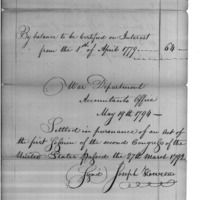 By balance to be Certified on Interest
from the 1st of April 1779 — 64 —
War Department
Accountants Office
May 19th 1794 —
Settled in pursuance of an Act of
the first Session of the second Congress of the
United States Passed the 27th March 1792
Joseph Howell